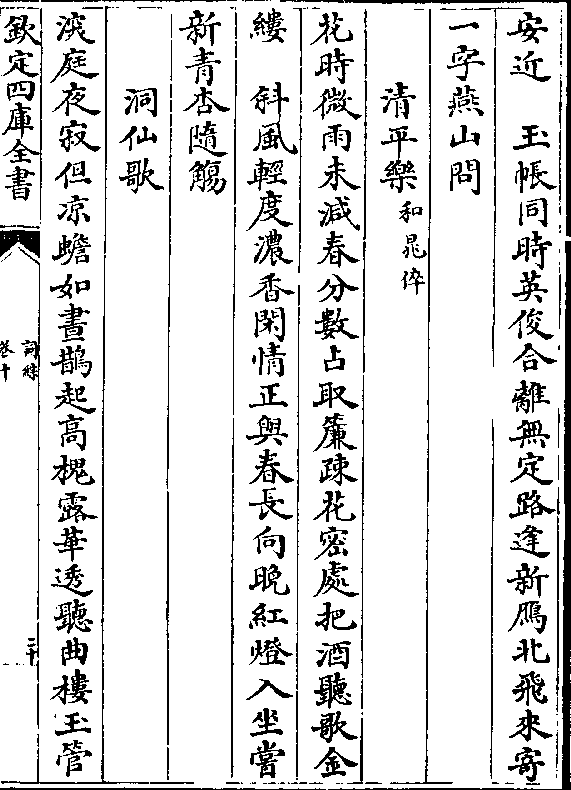 安近　玉帳同時英俊合離無定路逢新鴈北飛來寄
一字燕山問
清平樂和晁倅
花時微雨未減春分數占取簾疎花密處把酒聽歌金
縷　斜風輕度濃香閑情正與春長向晚紅燈入坐嘗
新青杏隨觴
洞仙歌
深庭夜寂但凉蟾如晝鵲起高槐露華透聽曲樓玉管
欽定四庫全書
詞綜
卷十
二十